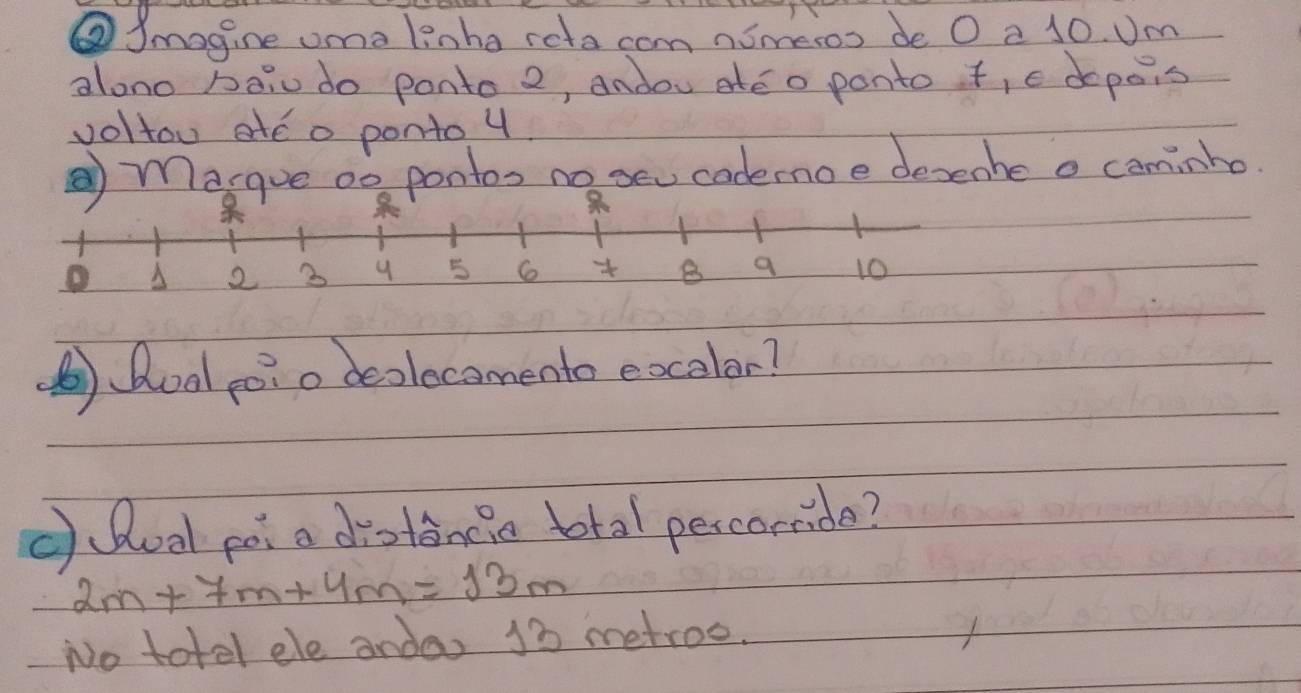 ② Imagine uma linha reta com números de 0 a 10. Um
aluno saiu do ponto 2, andou até o ponto 7, e depois
voltou até o ponto 4
a) Marque os pontos no seu caderno e desenhe o caminho.
0 1 2 3 4 5 6 7 8 9 10
b) Qual foi o deslocamento escalar?
c) Qual foi a distância total percorrida?
2m + 7m + 4m = 13m
No total ele andou 13 metros.